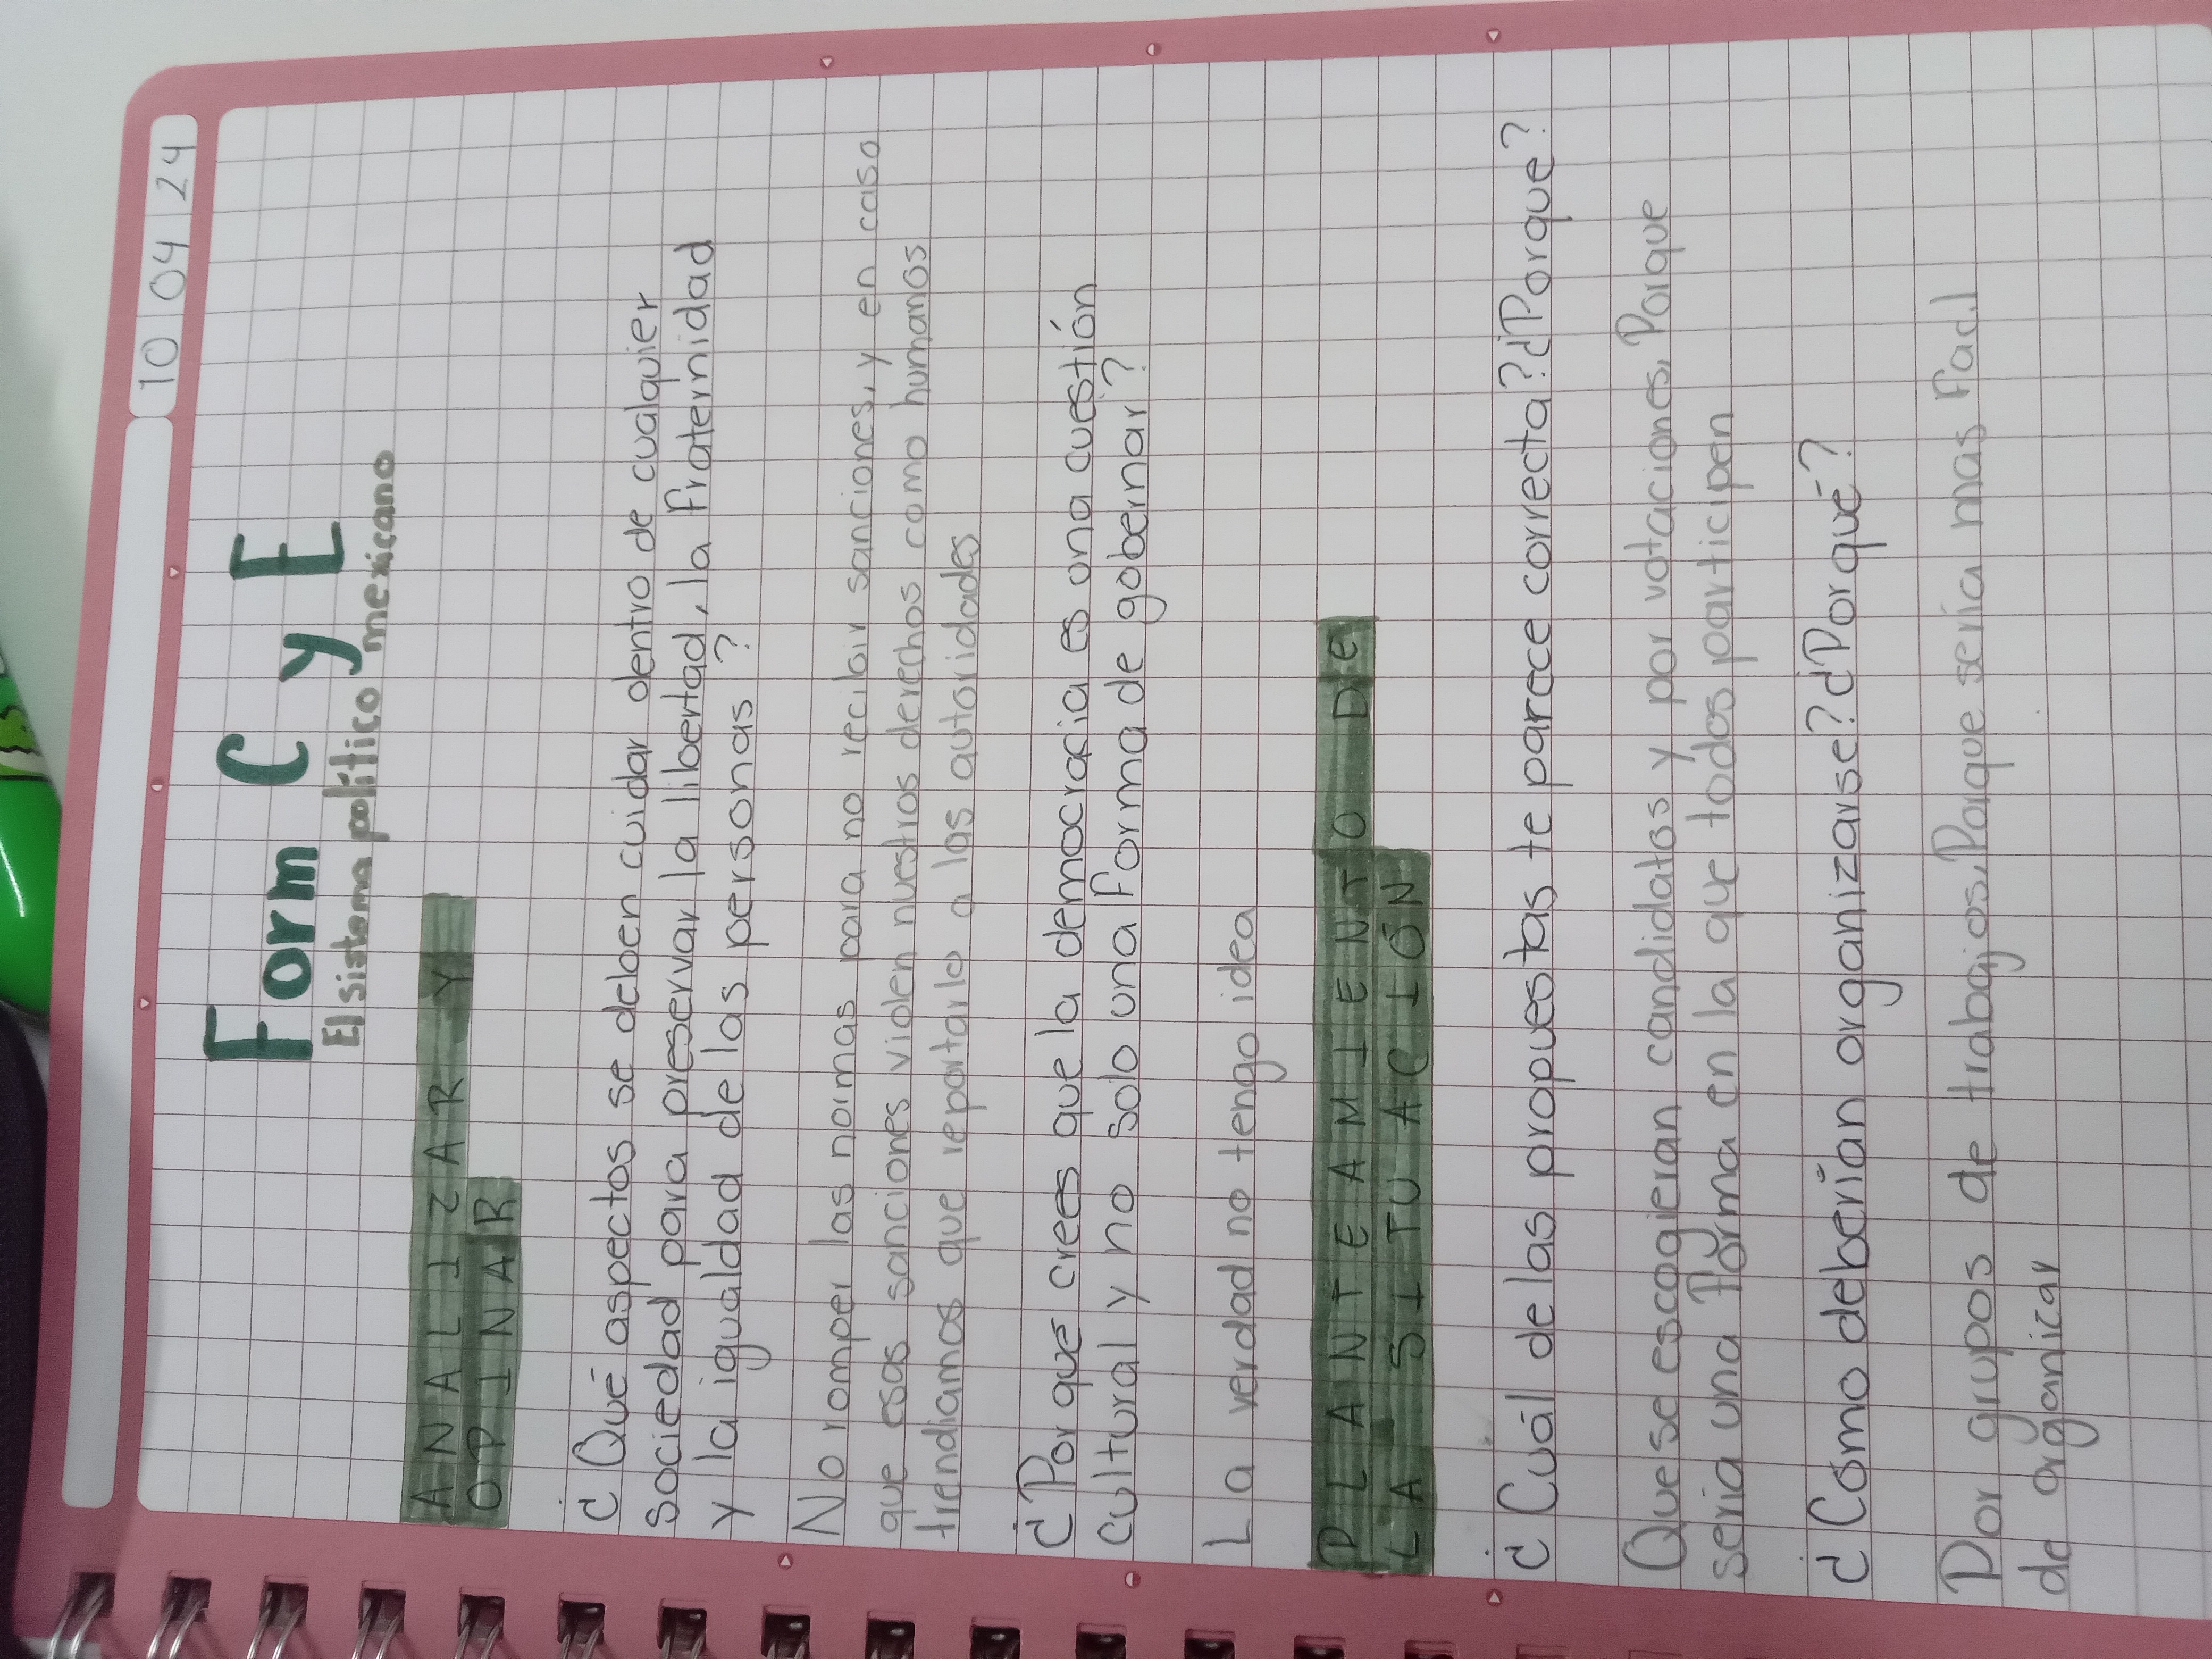 10 04 24
Form C y E
El sistema político mexicano
ANALIZAR Y
OPINAR
¿Qué aspectos se deben cuidar dentro de cualquier
sociedad para preservar la libertad, la fraternidad
y la igualdad de las personas?
No romper las normas para no recibir sanciones, y en caso
que esas sanciones violen nuestros derechos como humanos
trendiamos que reportarlo a las autoridades
¿Por qué crees que la democracia es una cuestión
cultural y no solo una forma de gobernar?
La verdad no tengo idea
PLANTEAMIENTO DE
LA SITUACIÓN
¿Cuál de las propuestas te parece correcta? ¿Porque?
Que se escogieran candidatos y por votaciones, Porque
seria una forma en la que todos participen
¿Cómo deberían organizarse? ¿Porqué?
Por grupos de trabajos, Porque seria mas facil
de organicar